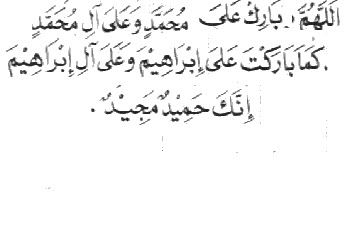 اَللّٰهُمَّ بَارِكْ عَلَى مُحَمَّدٍ وَعَلَى آلِ مُحَمَّدٍ
كَمَا بَارَكْتَ عَلَى إِبْرَاهِيْمَ وَعَلَى آلِ إِبْرَاهِيْمَ
إِنَّكَ حَمِيْدٌ مَجِيْدٌ.